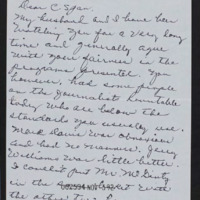 Dear C Span.
My husband and I have been
watching you for a very long
time and generally agree
with your fairness in the
programs presented. You
however has some people
on the Journalist Roundtable
today who are below the
standards you usually use.
Mark Davis was obnoxious
and had no manners. Jerry
Williams was little better.
I couldn't put Mr McGinty
in the same boat with
the other